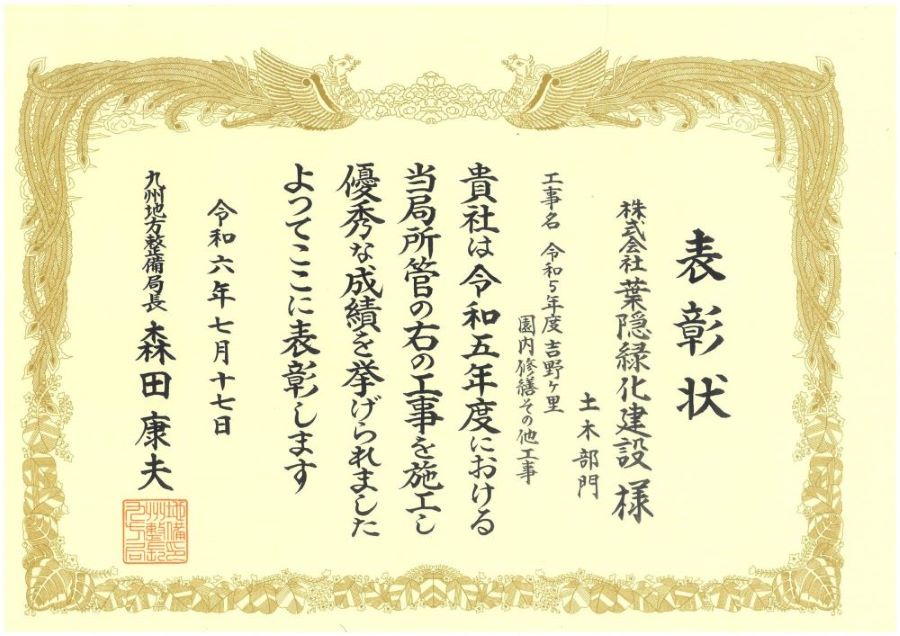 表彰状
株式会社 葉隠緑化建設 様
土木部門
工事名 令和5年度 吉野ヶ里
園内修繕その他工事
貴社は令和五年度における
当局所管の右の工事を施工し
優秀な成績を挙げられました
よってここに表彰します
令和六年七月十七日
九州地方整備局長 森田 康夫